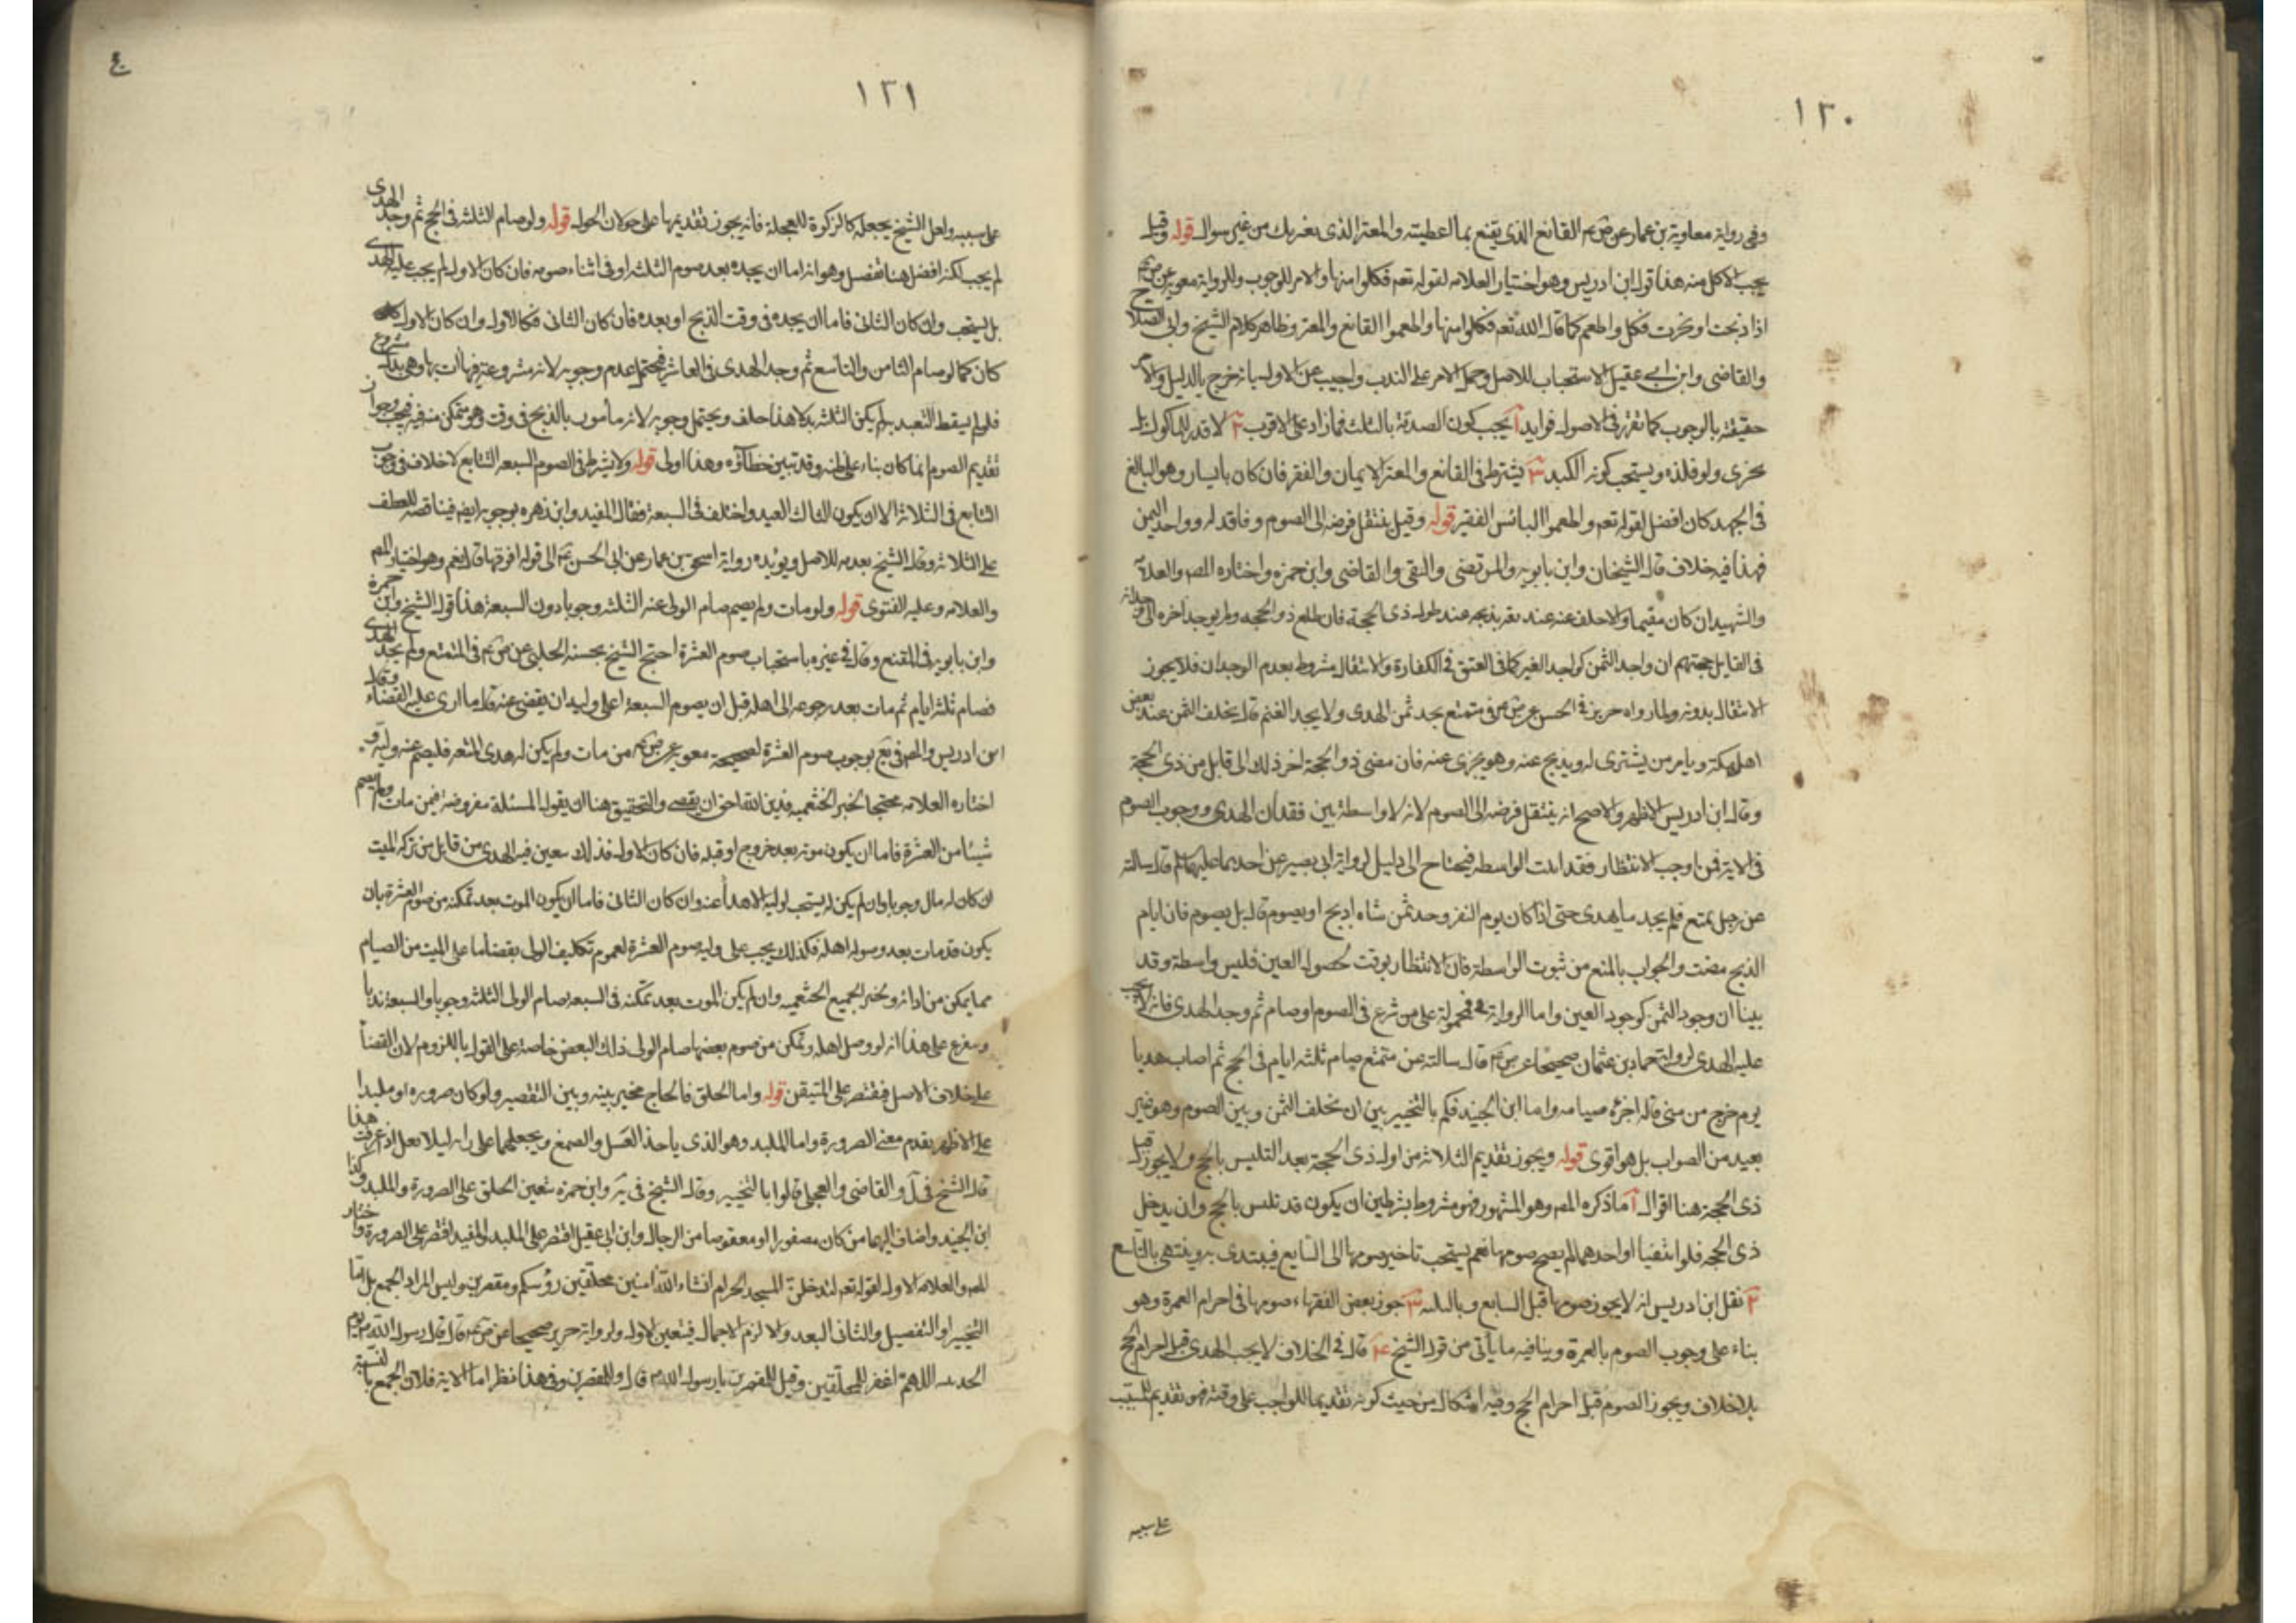 ١٣٠
وفى رواية معاوية بن عمار عن ص ع م القانع الذى يقنع بما اعطيته والمعتر الذى يعتريك من غير سوال قوله وقيل
يجب الاكل منه هذا قول ابن ادريس وهو اختيار العلامه لقوله تعم فكلوا منها والامر للوجوب وللرواية معوية عن
اذا ذبحت او نحرت فكل واطعم كما قال الله تعم فكلوا منها واطعموا القانع والمعتر وظاهر كلام الشيخ وابى الصلاح
والقاضى وابن ابى عقيل الاستحباب للاصل وحمل الامر على الندب واجيب عن الاول بانه خرج بالدليل والامر
حقيقة بالوجوب كما تقرر فى الاصول فوايد آ يجب كون الصدقة بالثلث فما زاد على الاقرب ٢ لا قدر للماكول بل
يجزى ولو فلذه ويستحب كونه الكبد ٣ يشترط فى القانع والمعتر الايمان والفقر فان كان بائسا وهو البالغ
فى الجهد كان افضل لقوله تعم واطعموا البائس الفقير قوله وقيل ينتقل فرضه الى الصوم وفاقد له وواجد الثمن
فهذا فيه خلاف قال الشيخان وابن بابويه والمرتضى والتقى والقاضى وابن حمزه واختاره المص والعلامة
والشهيد ان كان مقيما والاخلف عنه عند ثقه يذبحه عند طول ذى الحجة فان طلع ذو الحجه ولم يوجد اخره الى
فى القابل حجتهم ان واجد الثمن كواجد الغير كما فى العتق فى الكفارة والانتقال مشروط بعدم الوجدان فلا يجوز
الانتقال بدونه ولما رواه حريز فى الحسن عن ص ع م فى متمتع يجد ثمن الهدى ولا يجد الغنم قال يخلف الثمن عند بعض
اهل مكة ويامر من يشترى له ويذبح عنه وهو يجزى عنه فان مضى ذو الحجة اخر ذلك الى قابل من ذى الحجة
وقال ابن ادريس الاظهر والاصح انه ينتقل فرضه الى الصوم لانه لا واسطة بين فقدان الهدى ووجوب الصوم
فى الاية فمن اوجب الانتظار فقد اثبت الواسطه فيحتاج الى دليل لرواية ابى بصير عن احدهما عليهما سلم قال سالته
عن رجل تمتع فلم يجد ما يهدى حتى اذا كان يوم النفر وجد ثمن شاه ايذبح او يصوم قال بل يصوم فان ايام
الذبح مضت والجواب بالمنع من ثبوت الواسطة فان الانتظار بوقت لحصول العين فليس واسطة وقد
بينا ان وجود الثمن كوجود العين واما الرواية فمحمولة على من شرع فى الصوم او صام ثم وجد الهدى فانه لا يجب
عليه الهدى لرواية حماد بن عثمان صحيحا عن ص ع م قال سالته عن متمتع صام ثلثه ايام فى الحج ثم اصاب هديا
يوم خرج من منى قال اجزئه صيامه واما ابن الجنيد فحكم بالتخيير بين ان يخلف الثمن وبين الصوم وهو غير
بعيد من الصواب بل هو اقوى قوله ويجوز تقديم الثلاثه من اول ذى الحجة بعد التلبس بالحج ولا يجوز قبل
ذى الحجة هنا اقوال آ ما ذكره المص وهو المشهور فهو مشروط بشرطين ان يكون قد تلبس بالحج وان يدخل
ذى الحجه فلو انتفيا او احدهما لم يصح صومها نعم يستحب تاخير صومها الى السابع فيبتدى به وينتهى بالتاسع
٢ نقل ابن ادريس انه لا يجوز صومها قبل السابع وبالثالثه ٣ جوز بعض الفقهاء صومها فى احرام العمرة وهو
بناء على وجوب الصوم بالعمرة وينافيه ما ياتى من قول الشيخ ٤ قال فى الخلاف لا يجب الهدى قبل احرام الحج
بلا خلاف ويجوز الصوم قبل احرام الحج وفيه اشكال من حيث كونه تقديما للواجب على وقته فهو تقديم المسبب
على سببه
١٣١
على سببه ولعل الشيخ يجعله كالزكوة المعجلة فانه يجوز تقديمها على حولان الحول قوله ولو صام الثلثه فى الحج ثم وجد الهدى
لم يجب لكنه افضل هنا تفصيل وهو انه اما ان يجده بعد صوم الثلثه او فى اثناء صومه فان كان الاول لم يجب عليه الهدى
بل يستحب وان كان الثانى فاما ان يجده فى وقت الذبح او بعده فان كان الثانى فكالاول وان كان الاول
كان كما لو صام الثامن والتاسع ثم وجد الهدى فى العاشر فيحتمل عدم وجوبه لانه مشروعيته فيها ات بها وهى بدل
فلو لم يسقط التعبد به لم يكن الثلثه بدلا هذا خلف ويحتمل وجوبه لانه مأمور بالذبح فى وقت وهو متمكن منه فيجب وجواز
تقديم الصوم انما كان بناء على ظنه وقد تبين خطاؤه وهذا اولى قوله ولا يشترط فى الصوم السبعه التتابع لا خلاف فى وجوب
التتابع فى الثلاثة الا ان يكون الثالث العيد واختلف فى السبعة فقال المفيد وابن زهره بوجوبه ايضا قضية للعطف
على الثلاثه وقال الشيخ بعدمه للاصل ويؤيده رواية اسحق بن عمار عن ابى الحسن ع م الى قوله افرقها قال نعم وهو اختيار المص
والعلامه وعليه الفتوى قوله ولو مات ولم يصم صام الولى عنه الثلثه وجوبا دون السبعة هذا قول الشيخ وابن حمزة
وابن بابويه فى المقنع وقال فى غيره باستحباب صوم العشرة احتج الشيخ بحسنه الحلبى عن ص ع م فى المتمتع ولم يجد الهدى
فصام ثلثه ايام ثم مات بعد رجوعه الى اهله قبل ان يصوم السبعة اعلى وليه ان يقضى عنه قال ما ارى عليه القضاء وقال
ابن ادريس والمص فى يع بوجوب صوم العشرة لصحيحة معوية عن ص ع م من مات ولم يكن له هدى المتعه فليصم عنه وليه و
اختاره العلامه محتجا بالخبر الخثعميه فدين الله احق ان يقضى والتحقيق هنا ان يقول المسئلة مفروضة فيمن مات ولم يصم
شيئا من العشرة فاما ان يكون موته بعد خروج او قبله فان كان الاول فذلك تعين فيه الهدى من قابل من تركه الميت
ان كان له مال وجوبا وان لم يكن له يستحب لوليه الاهدأ عنه وان كان الثانى فاما ان يكون الموت بعد تمكنه من صوم العشرة بان
يكون قد مات بعد وصوله اهله فكذلك يجب على وليه صوم العشرة لعموم تكليف الولى بقضأ ما على الميت من الصيام
مما يمكن من ادائه ولخبر الجميع الخثعميه وان لم يكن الموت بعد تمكنه فى السبعه صام الولى الثلثه وجوبا والسبعة ندبا
ويتفرع على هذا انه لو وصل اهله وتمكن من صوم بعضها صام الولى ذلك البعض خاصة على القول باللزوم لان القضأ
على خلاف الاصل فيقتصر على المتيقن قوله واما الحلق فالحاج مخير بينه وبين التقصير ولو كان صروره او ملبدا
على الاظهر تقدم معنى الصرورة واما الملبد وهو الذى ياخذ العسل والصمغ ويجعلهما على راسه ليلا يقمل اذ عرفت هذا
قال الشيخ فى آل والقاضى والعجلى قالوا بالتخيير وقال الشيخ فى يه وابن حمزه بتعين الحلق على الصرورة والملبد وكذا
ابن الجنيد واضاف اليهما من كان مضفورا او معقوصا من الرجال وابن ابى عقيل اقتصر على الملبد والمفيد اقتصر على الصرورة واختار
المص والعلامه الاول لقوله تعم لتدخلن المسجد الحرام انشاء الله امنين محلقين رؤسكم ومقصرين وليس المراد الجمع بل اما
التخيير او التفصيل والثانى البعد والا لزم الاجمال فيتعين الاول ولرواية حريز صحيحا عن ص ع م قال قال رسول الله ص يوم
الحديبية اللهم اغفر للمحلقين وقيل للمقصرين يا رسول الله ص قال وللمقصرين وفى هذا نظر اما الاية فلان الجمع بالنسبة